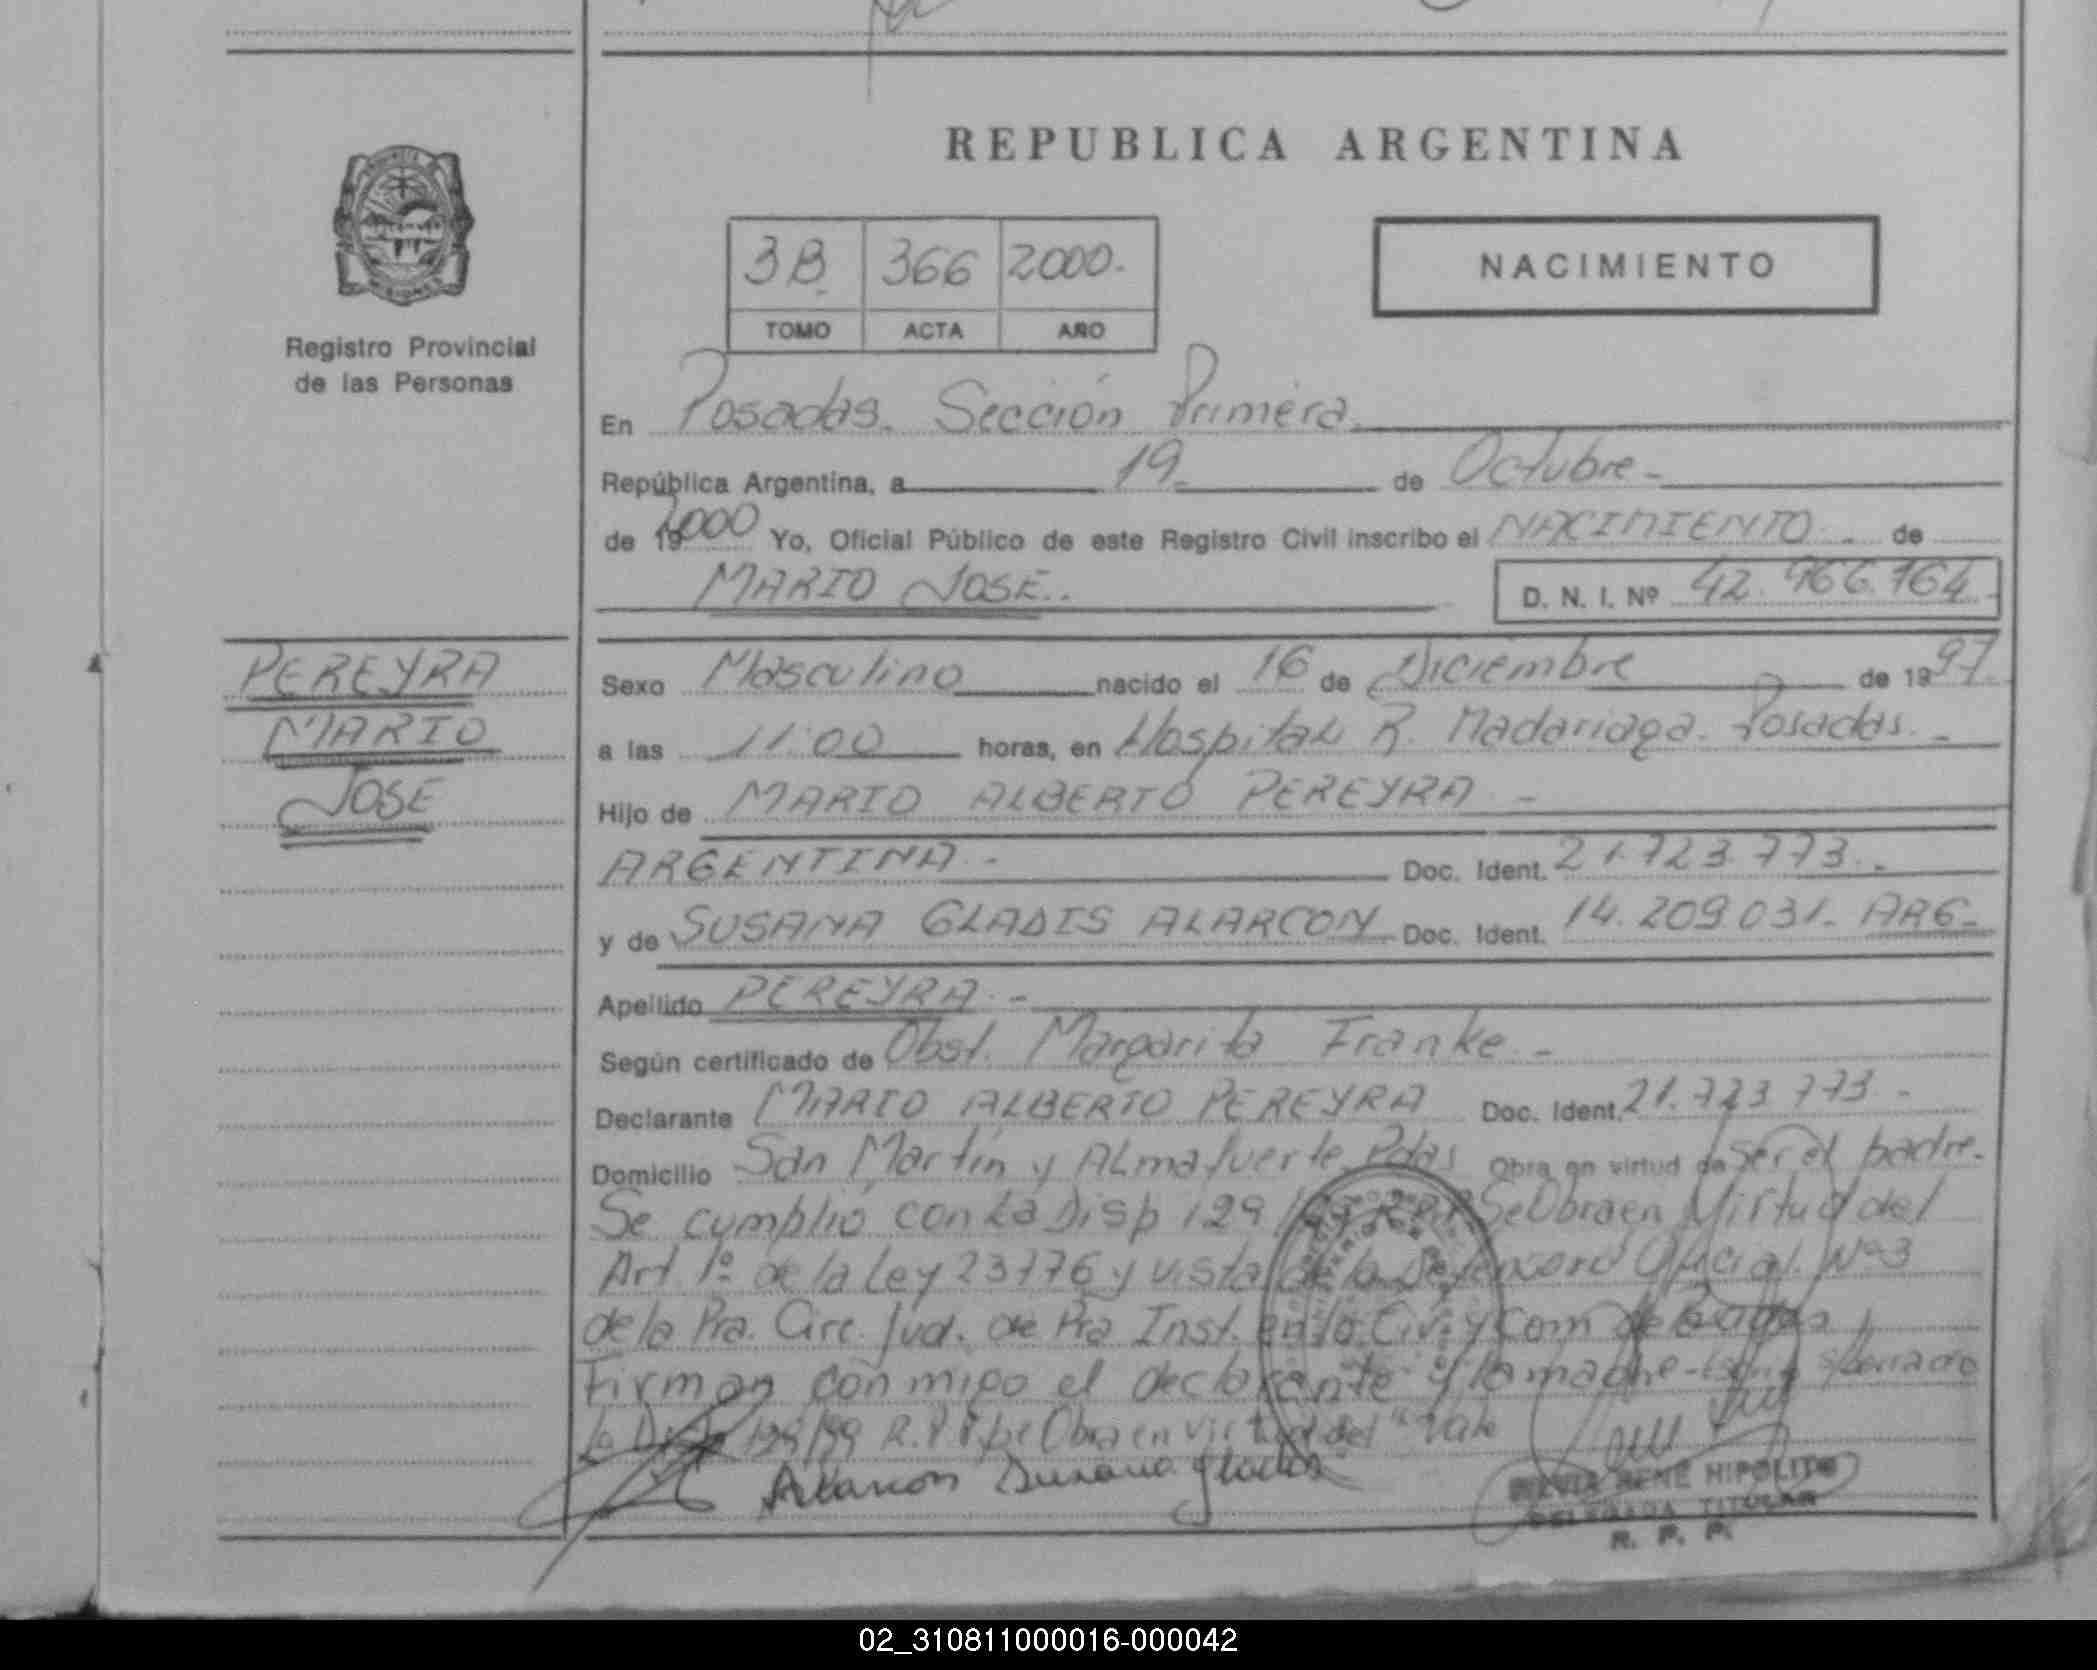 REPUBLICA ARGENTINA
3B 366 2000.
TOMO ACTA AÑO
NACIMIENTO
Registro Provincial
de las Personas
En Posadas. Sección Primera.
República Argentina, a 19 de Octubre
de 19 2000 Yo, Oficial Público de este Registro Civil inscribo el NACIMIENTO de
MARIO JOSE.. D. N. I. Nº 42.966.764
PEREYRA
MARIO
JOSE
Sexo Masculino nacido el 16 de Diciembre de 1997
a las 11:00 horas, en Hospital R. Madariaga. Posadas.
Hijo de MARIO ALBERTO PEREYRA
ARGENTINA Doc. Ident. 21.723.773.
y de SUSANA GLADIS ALARCON Doc. Ident. 14.209.031. ARG
Apellido PEREYRA
Según certificado de Obst. Margarita Franke
Declarante MARIO ALBERTO PEREYRA Doc. Ident. 21.723.773.
Domicilio San Martín y ALmafuerte Pdas Obra en virtud de Ser el padre.
Se cumplió con La Disp 129/99 R.P.P Se Obra en Virtud del
Art 1º de la Ley 23776 y vista de la Defensora Oficial Nº 3
de la Pra. Circ. Jud. de Pra Inst. en lo Civ. y Com de Posadas
Firman conmigo el declarante y la madre
129/99 R.P.P. Se Obra en Virtud del "Vale
Alarcon Susana Gladis
RENE HIPOLITO
DELEGADA TITULAR
R. P. P.
02_310811000016-000042